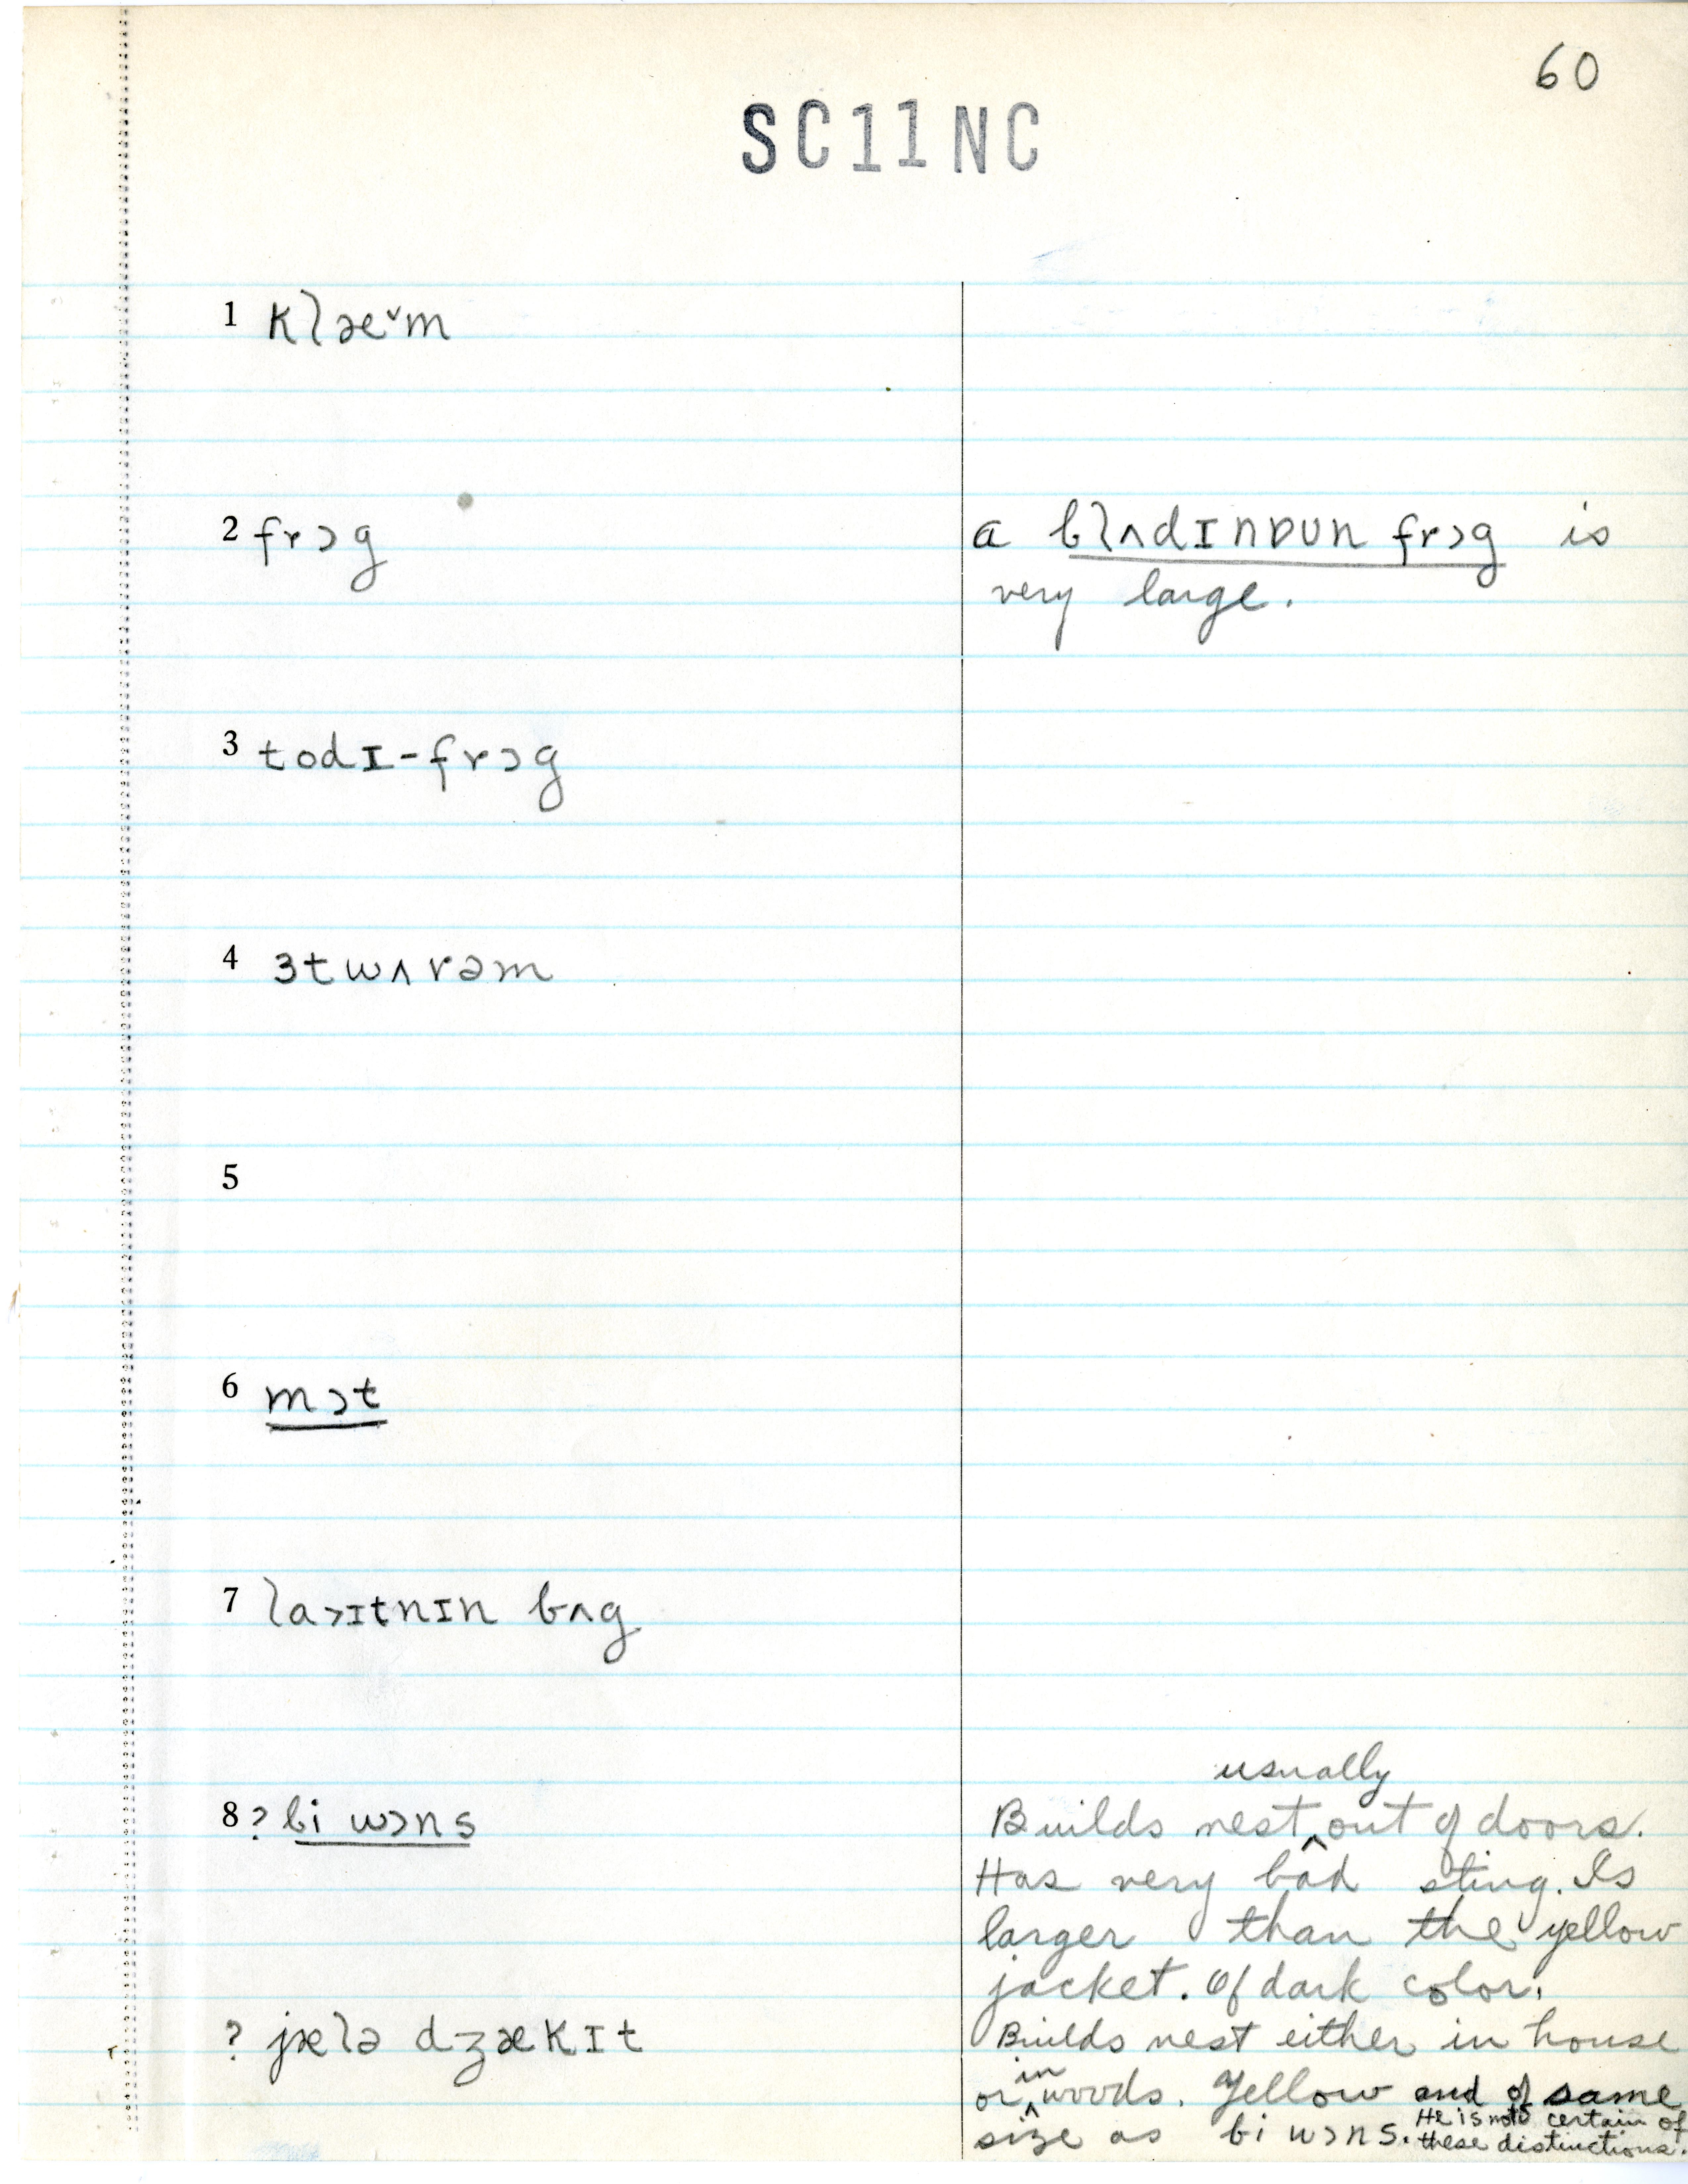 60
SC11NC
1 klæ˅m
2 frɔg
a blʌdɪnʊun frɔg is
very large.
3 todɪ-frɔg
4 ɜtwʌrəm
5
6 mɔt
7 la>ɪtnɪn bʌg
usually
8 ? bi wɔns
Builds nest ^ out of doors.
Has very bad sting. Is
larger than the yellow
jacket. Of dark color.
? jælə dʒækɪt
Builds nest either in house
in
or ^ woods. Yellow and of same
size as bi wɔns. He is not certain of
these distinctions.